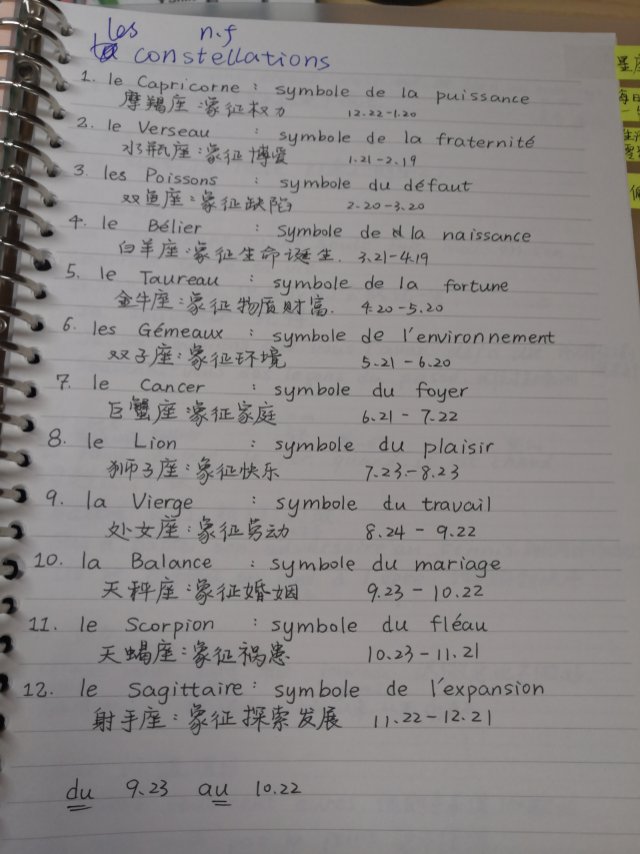 les n.f
la constellations
1. le Capricorne : symbole de la puissance
摩羯座:象征权力 12.22-1.20
2. le Verseau : symbole de la fraternité
水瓶座:象征博爱 1.21-2.19
3. les Poissons : symbole du défaut
双鱼座:象征缺陷 2.20-3.20
4. le Bélier : symbole de la naissance
白羊座:象征生命诞生. 3.21-4.19
5. le Taureau : symbole de la fortune
金牛座:象征物质财富. 4.20-5.20
6. les Gémeaux : symbole de l'environnement
双子座:象征环境 5.21-6.20
7. le Cancer : symbole du foyer
巨蟹座:象征家庭 6.21-7.22
8. le Lion : symbole du plaisir
狮子座:象征快乐 7.23-8.23
9. la Vierge : symbole du travail
处女座:象征劳动 8.24-9.22
10. la Balance : symbole du mariage
天秤座:象征婚姻 9.23-10.22
11. le Scorpion : symbole du fléau
天蝎座:象征祸患 10.23-11.21
12. le Sagittaire : symbole de l'expansion
射手座:象征探索发展 11.22-12.21
du 9.23 au 10.22